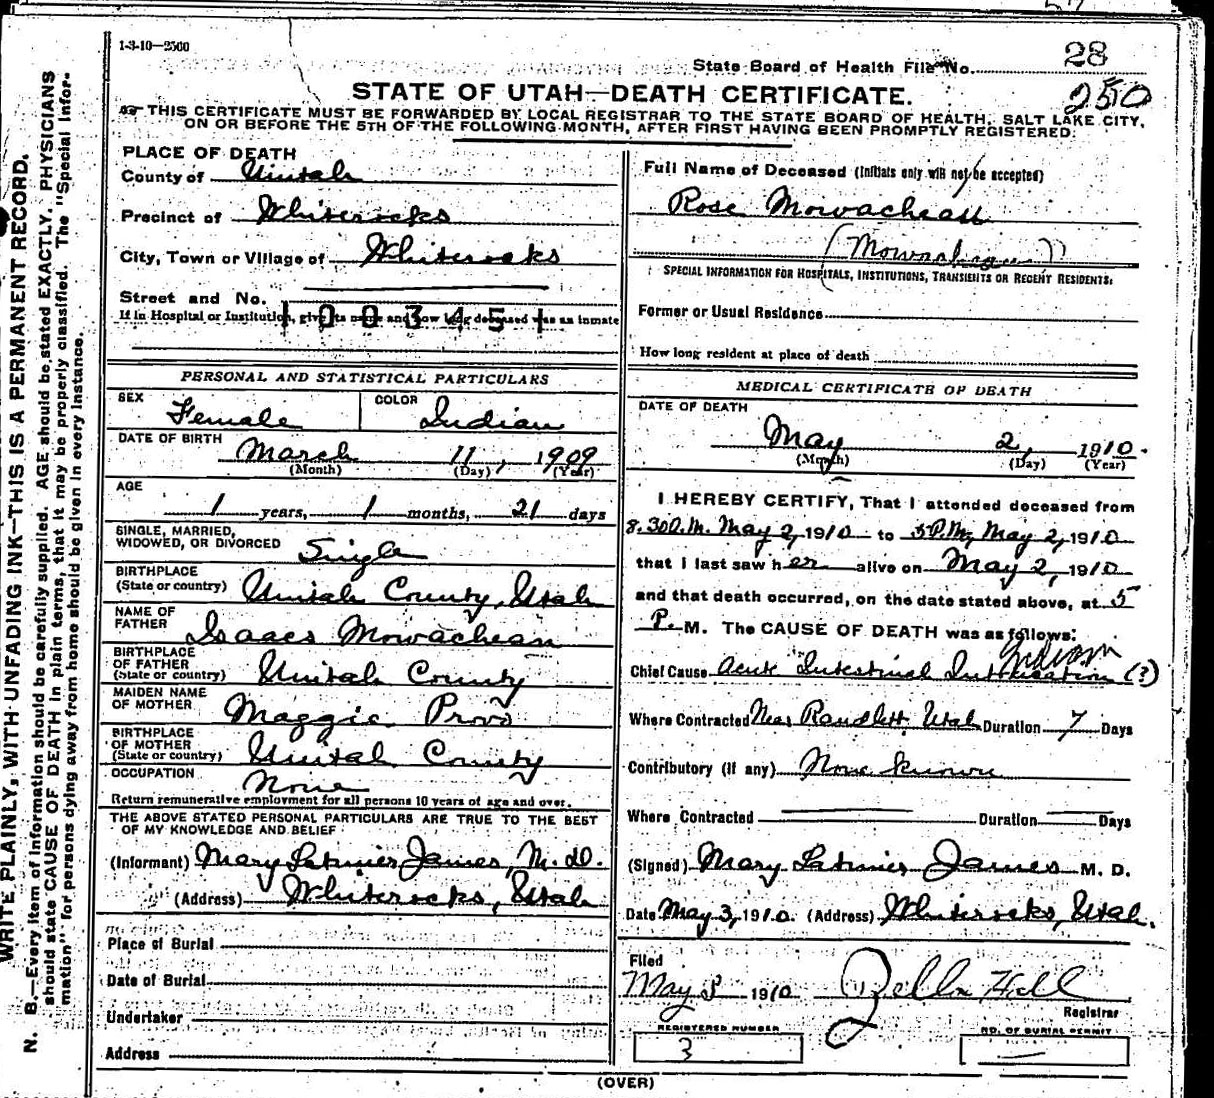 1-3-10—2500
State Board of Health File No. 28
250
STATE OF UTAH—DEATH CERTIFICATE.
THIS CERTIFICATE MUST BE FORWARDED BY LOCAL REGISTRAR TO THE STATE BOARD OF HEALTH, SALT LAKE CITY,
ON OR BEFORE THE 5TH OF THE FOLLOWING MONTH, AFTER FIRST HAVING BEEN PROMPTLY REGISTERED.
WRITE PLAINLY, WITH UNFADING INK—THIS IS A PERMANENT RECORD.
N. B.—Every item of information should be carefully supplied. AGE should be stated EXACTLY. PHYSICIANS
should state CAUSE OF DEATH in plain terms, that it may be properly classified. The "Special Infor-
mation" for persons dying away from home should be given in every instance.
PLACE OF DEATH
County of Uintah
Precinct of Whiterocks
City, Town or Village of Whiterocks
Street and No.
If in Hospital or Institution, give its name and how long deceased was as inmate
1003451
PERSONAL AND STATISTICAL PARTICULARS
SEX Female COLOR Indian
DATE OF BIRTH March 11, 1909
(Month) (Day) (Year)
AGE
1 years, 1 months, 21 days
SINGLE, MARRIED,
WIDOWED, OR DIVORCED Single
BIRTHPLACE
(State or country) Uintah County, Utah
NAME OF
FATHER Isaacs Mowachean
BIRTHPLACE
OF FATHER
(State or country) Uintah County
MAIDEN NAME
OF MOTHER Maggie Provo
BIRTHPLACE
OF MOTHER
(State or country) Uintah County
OCCUPATION None
Return remunerative employment for all persons 10 years of age and over.
THE ABOVE STATED PERSONAL PARTICULARS ARE TRUE TO THE BEST
OF MY KNOWLEDGE AND BELIEF
(Informant) Mary Latimer James, M.D.
(Address) Whiterocks, Utah
Place of Burial
Date of Burial
Undertaker
Address
Full Name of Deceased (Initials only will not be accepted)
Rose Mowachean
SPECIAL INFORMATION FOR HOSPITALS, INSTITUTIONS, TRANSIENTS OR RECENT RESIDENTS:
Former or Usual Residence
How long resident at place of death
MEDICAL CERTIFICATE OF DEATH
DATE OF DEATH
May 2, 1910.
(Month) (Day) (Year)
I HEREBY CERTIFY, That I attended deceased from
8.30 A.M. May 2, 1910 to 5 P.M. May 2, 1910
that I last saw her alive on May 2, 1910
and that death occurred, on the date stated above, at 5
P. M. The CAUSE OF DEATH was as follows:
Chief Cause Acute Intestinal (?)
Where Contracted Near Randlett, Utah Duration 7 Days
Contributory (if any) None known
Where Contracted Duration Days
(Signed) Mary Latimer James M. D.
Date May 3, 1910. (Address) Whiterocks, Utah.
Filed
May 1910 Zella Hall
Registrar
REGISTERED NUMBER
3
NO. OF BURIAL PERMIT
—
(OVER)